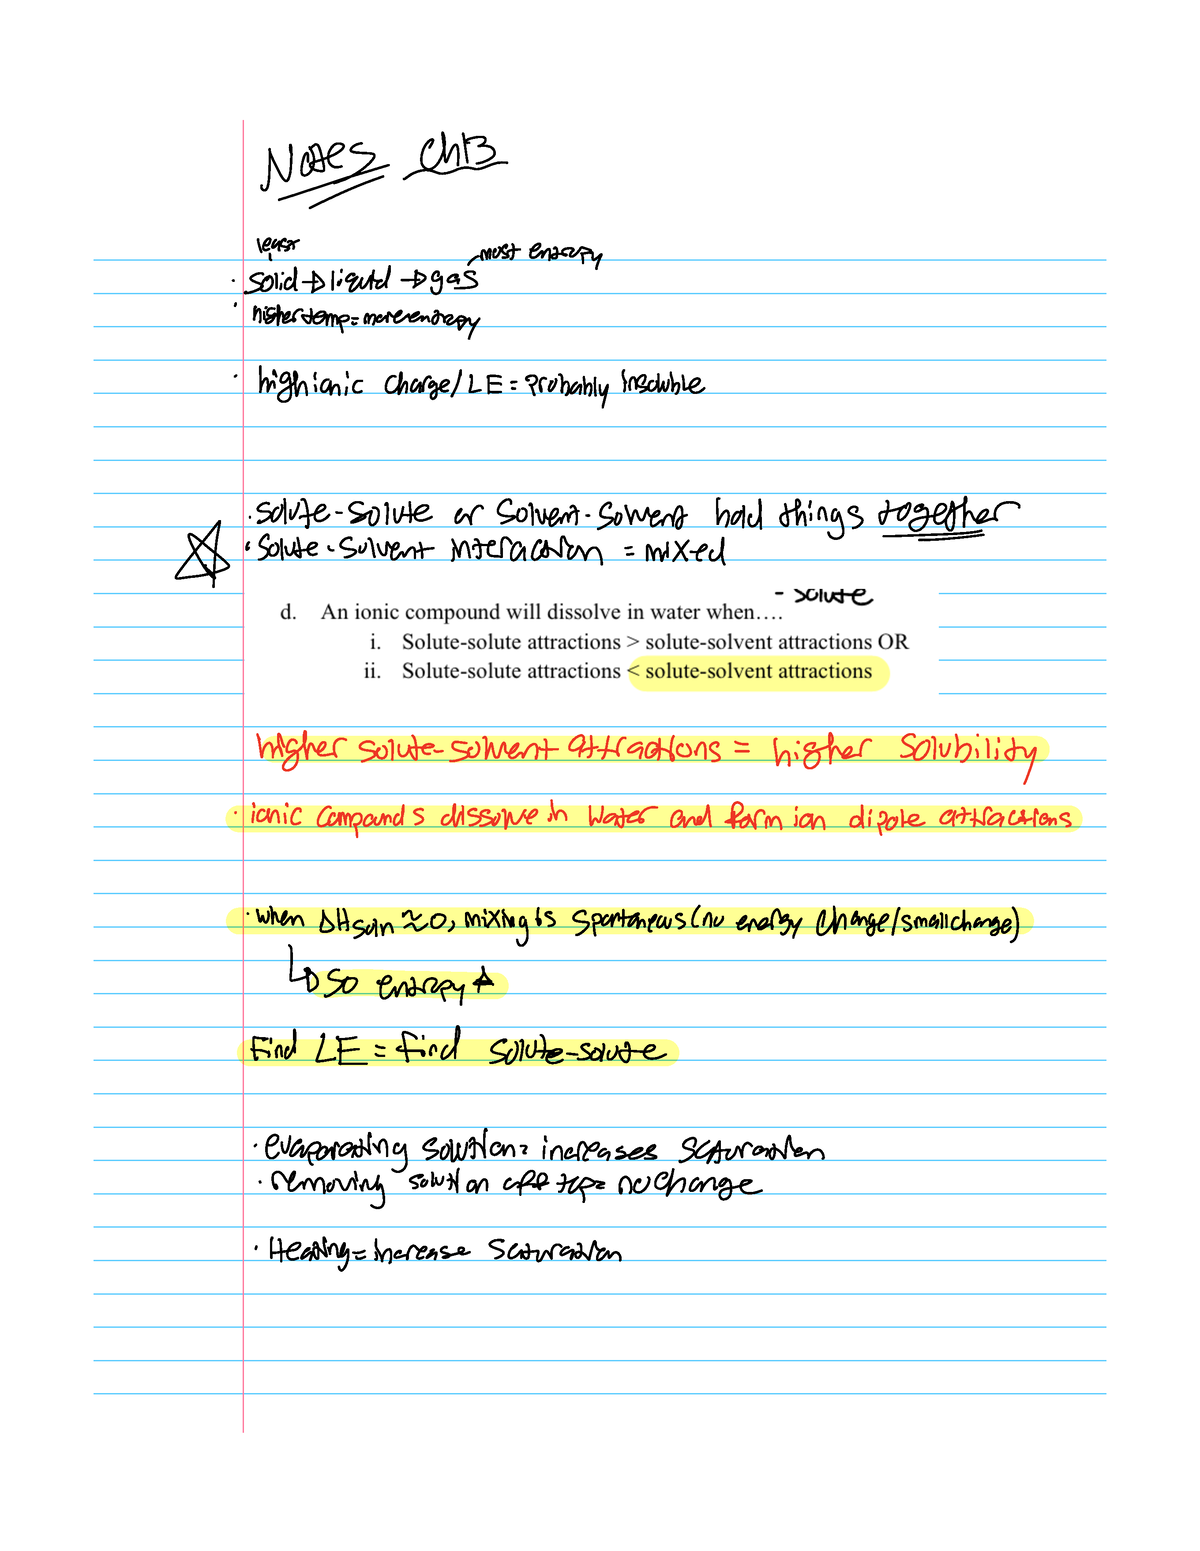 Notes Ch13
least
most entropy
· solid → liquid → gas
· higher temp = more entropy
· high ionic charge/LE = probably insoluble
· solute-solute or solvent-solvent hold things together
· solute-solvent interaction = mixed
- solute
d. An ionic compound will dissolve in water when….
i. Solute-solute attractions > solute-solvent attractions OR
ii. Solute-solute attractions < solute-solvent attractions
higher solute-solvent attractions = higher solubility
· ionic compounds dissolve in water and form ion dipole attractions
· when ΔHsoln ≈ 0, mixing is spontaneous (no energy change/small change)
↳ so entropy ↑
Find LE = find solute-solute
· evaporating solution = increases saturation
· removing solution off top = no change
· Heating = increase saturation